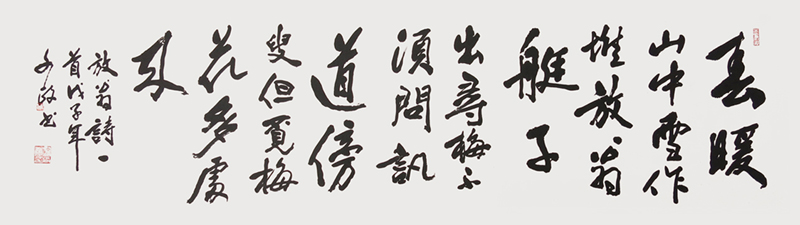 春暖
山中雪作
堆放翁
艇子
出尋梅不
須問訊
道傍
叟但覓梅
花多處
來
放翁詩一
首戊子年